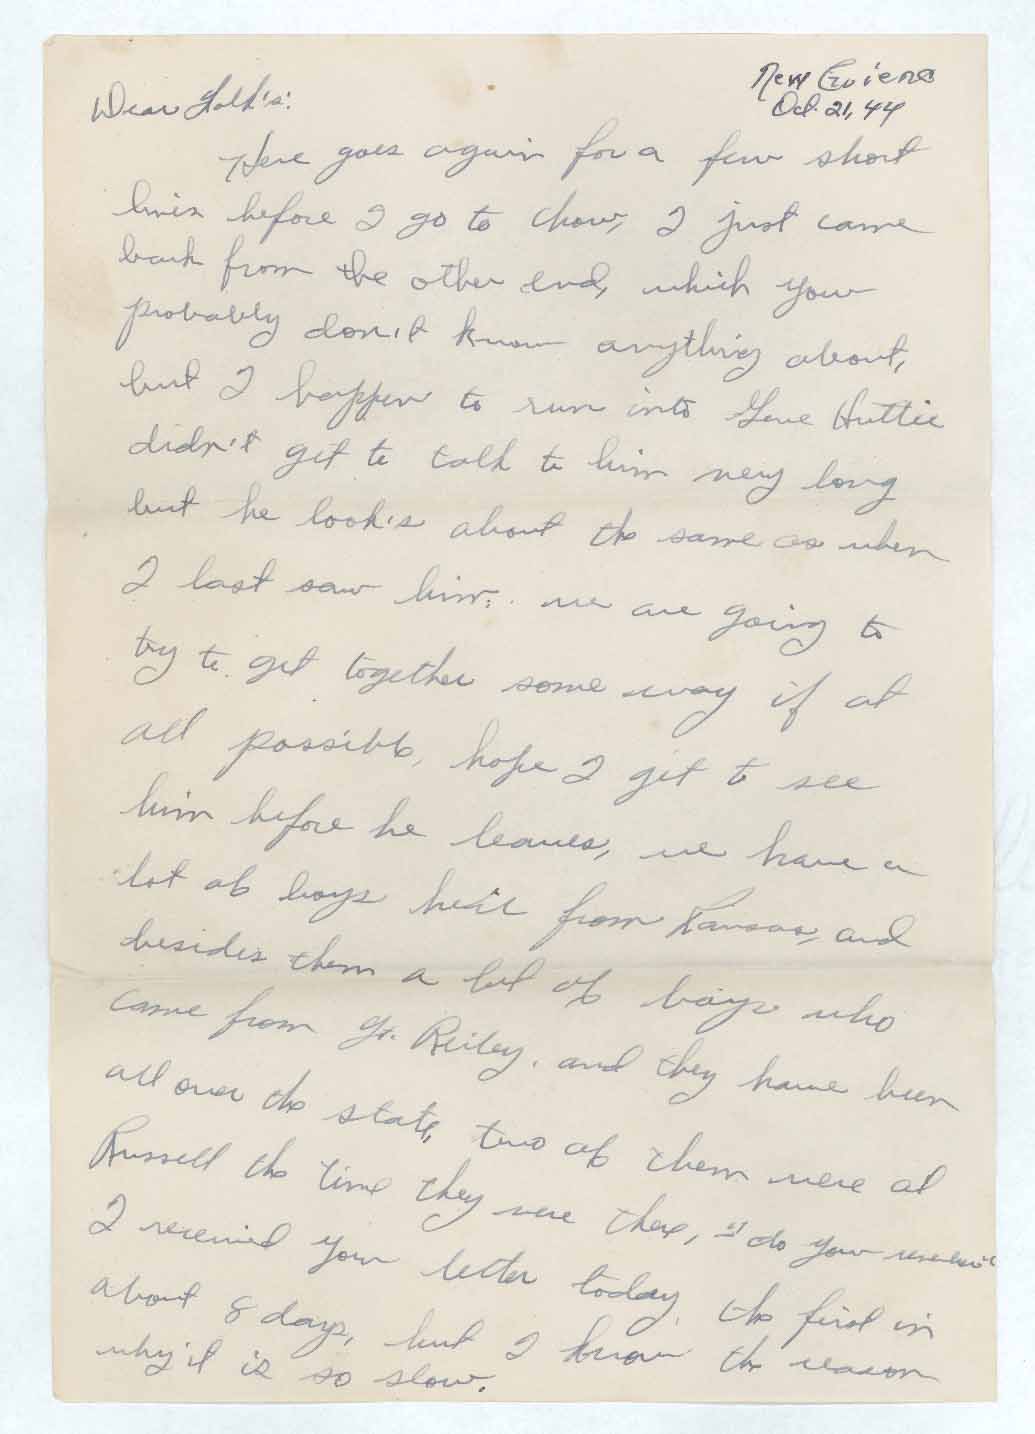 New Guiena
Oct. 21, 44
Dear Folk's:
Here goes again for a few short
lines before I go to chow, I just came
back from the other end, which you
probably don't know anything about,
but I happen to run into Gene Huttie
didn't get to talk to him very long
but he look's about the same as when
I last saw him. we are going to
try to get together some way if at
all possible, hope I get to see
him before he leaves, we have a
lot of boys here from Kansas, and
besides them a lot of boys who
came from Ft. Reiley. and they have been
all over the state, two of them were at
Russell the time they were there, "do you remember"
I received your letter today, the first in
about 8 days, but I know the reason
why it is so slow.